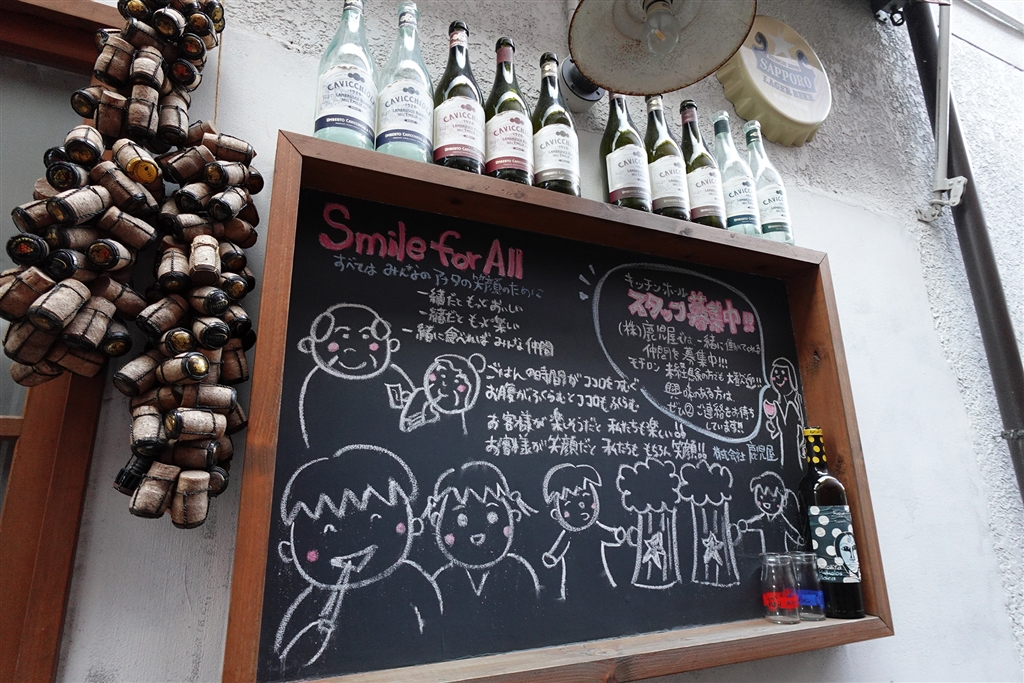 CAVICCHIOLI
CAVICCHIOLI
CAVICCHIOLI
CAVICCHIOLI
SAPPORO
Smile for All
すべては みんなの アナタの笑顔のために
一緒だともっとおいしい
一緒だともっと楽しい
一緒に食べればみんな仲間
ごはんの時間がココロをつむぐ
お腹がふくらむとココロもふくらむ
お客様が楽しそうだと私たちも楽しい!!
お客様が笑顔だと 私たちも もちろん 笑顔!! 株式会社 鹿児屋
キッチンホール
スタッフ募集中!!
(株)鹿児屋では、一緒に働いてくれる
仲間を募集中!!!
モチロン 未経験の方も大歓迎!!
興味のある方は
ぜひ ご連絡をお待ち
しています!!!